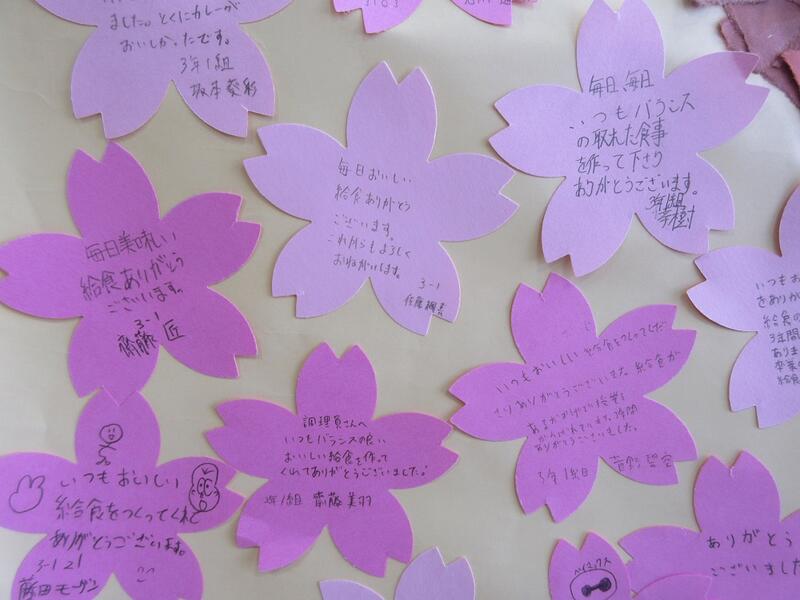 ました。とくにカレーが
おいしかったです。
3年1組
毎日、毎日
いつもバランス
の取れた食事
を作って下さり
ありがとうございます。
3年1組
毎日おいしい
給食ありがとう
ございます。
これからもよろしく
おねがいします。
3-1
毎日美味しい
給食ありがとう
ございます。
3-1
齋藤 匠
いつもお
をありが
給食の
3年間
ありま
卒業
給食
いつもおいしい給食をつくってくだ
さりありがとうございました。給食が
あるから
がんばれています。3年間
ありがとうございました。
3年1組
調理員さんへ
いつもバランスの良い
おいしい給食を作って
くれてありがとうございました。
3年1組 齋藤 美羽
いつもおいしい
給食をつくってくれて
ありがとうございます。
3-1 21
藤田 モーガン
ベイマックス
ありがとう
ございました